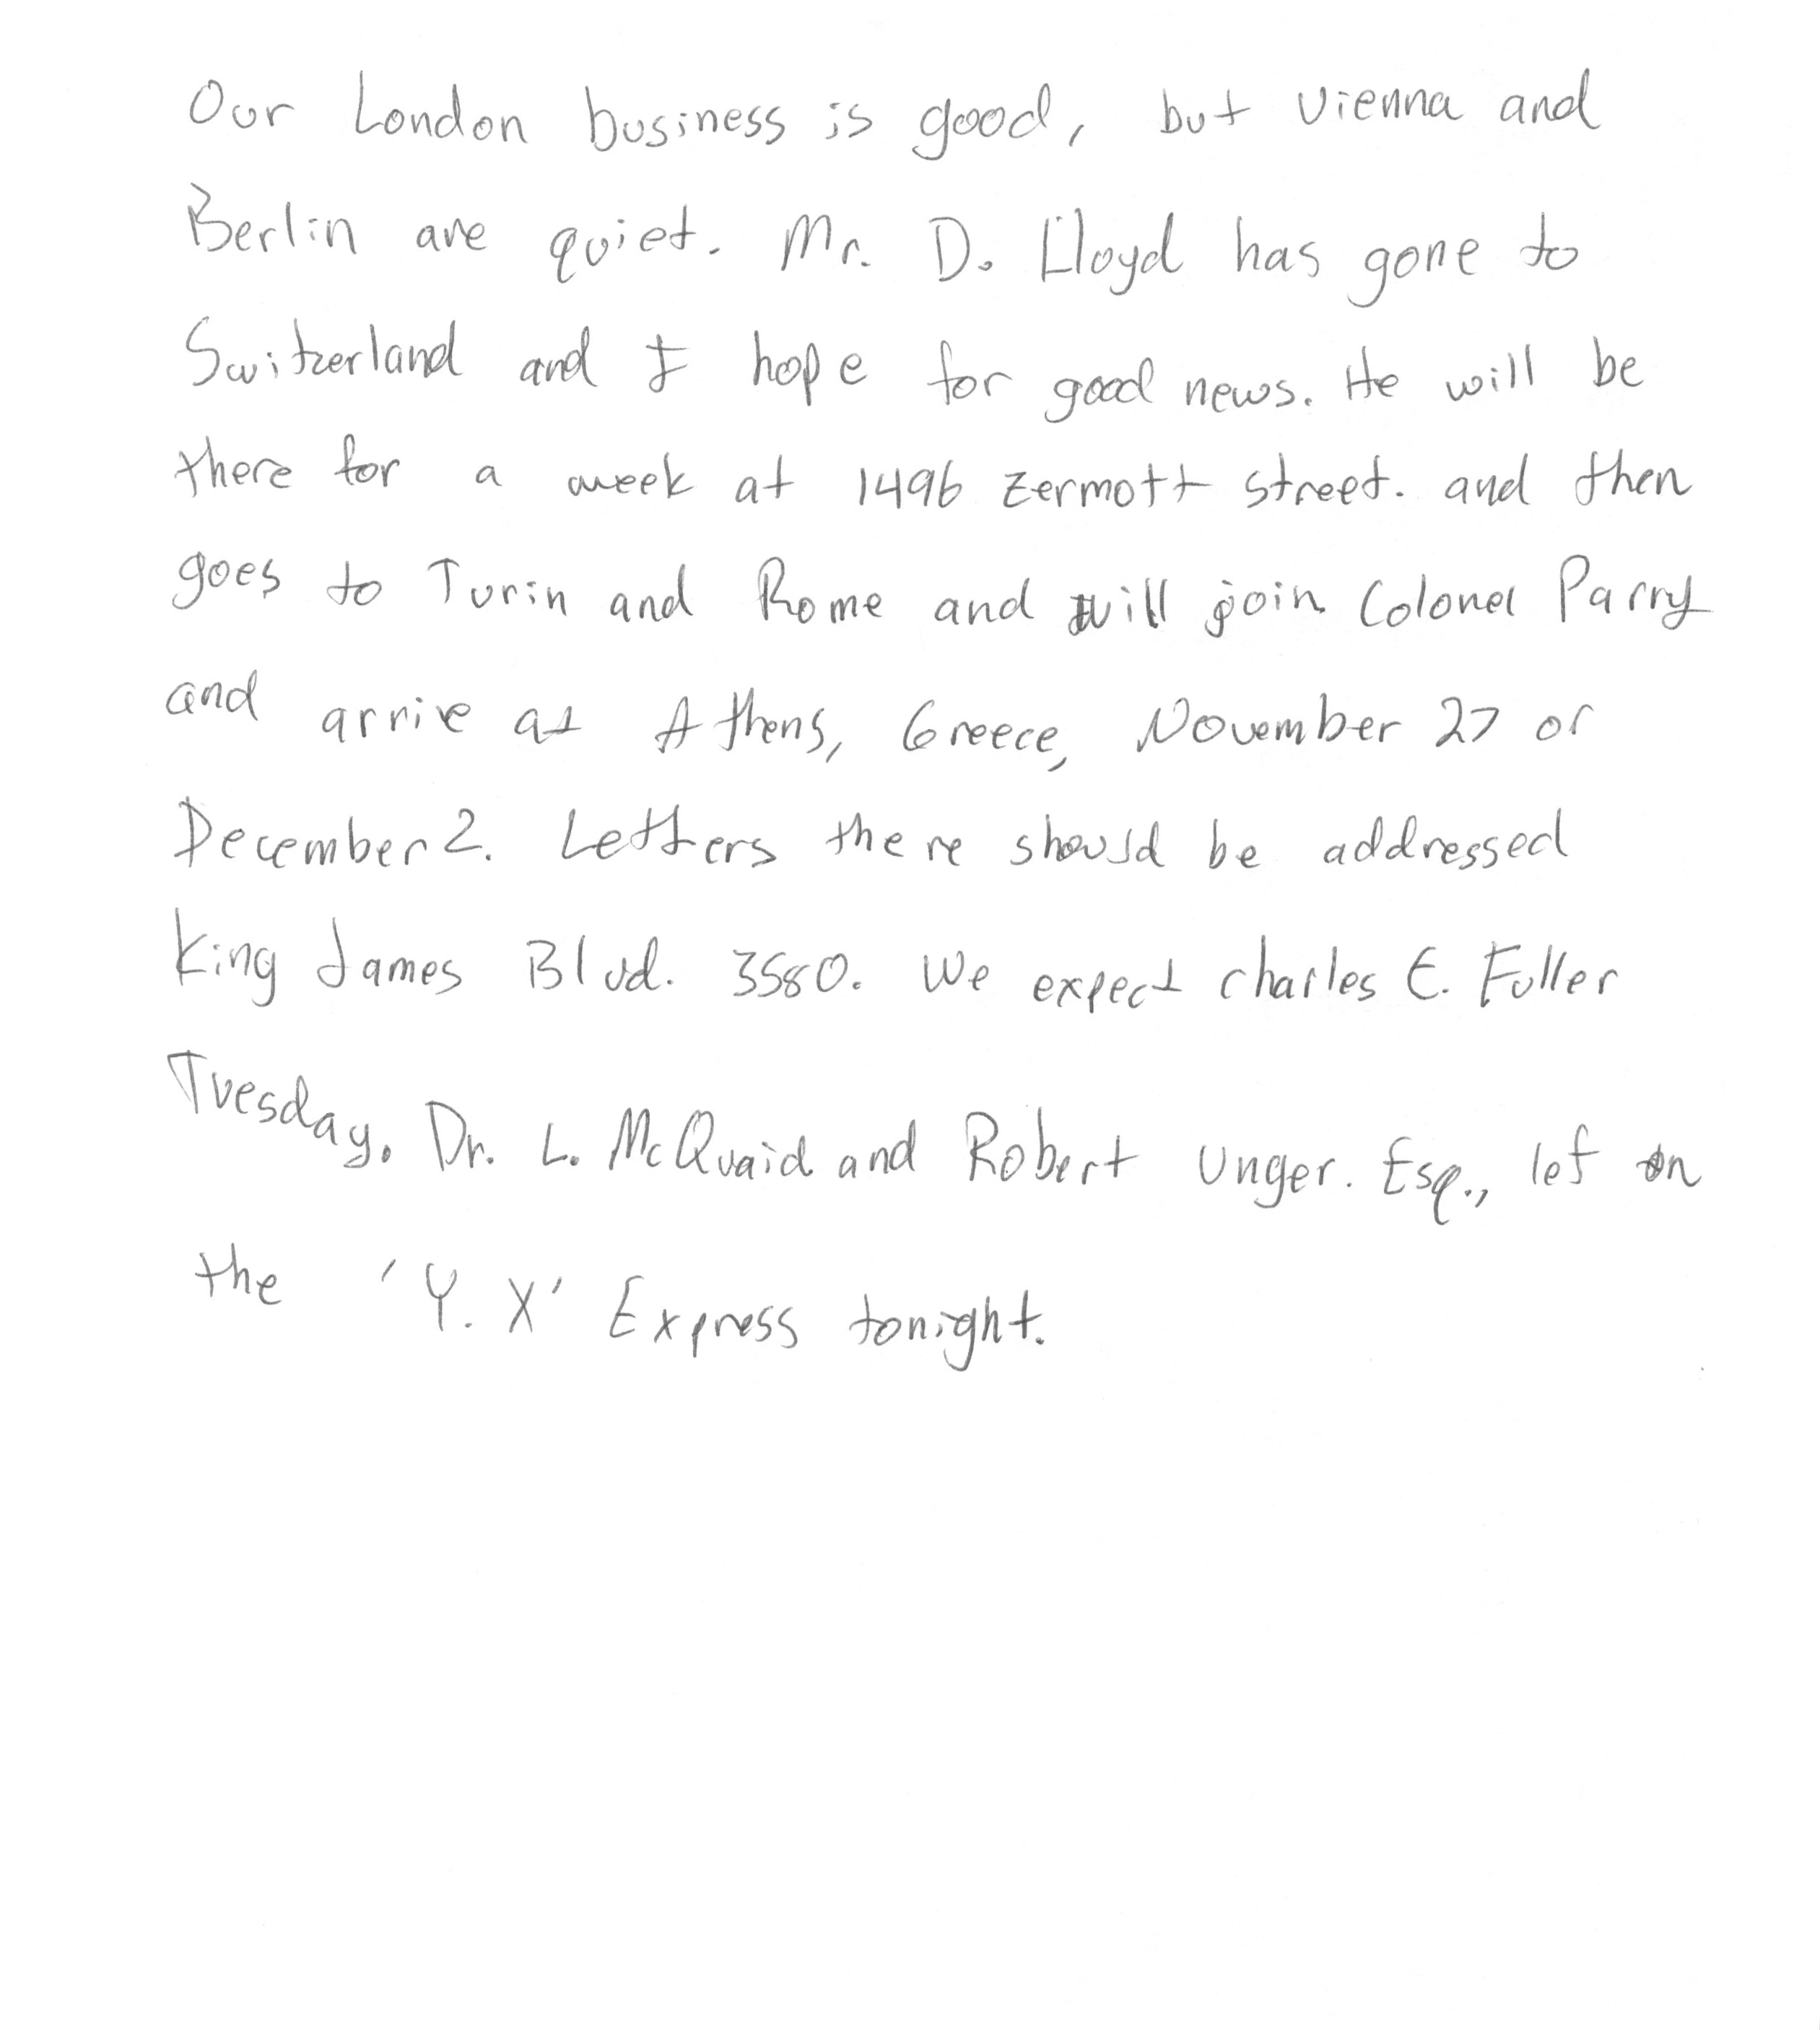 Our London business is good, but Vienna and
Berlin are quiet. Mr. D. Lloyd has gone to
Switzerland and I hope for good news. He will be
there for a week at 1496 Zermott street. and then
goes to Turin and Rome and will join Colonel Parry
and arrive at Athens, Greece, November 27 or
December 2. Letters there should be addressed
King James Blvd. 3580. We expect Charles E. Fuller
Tuesday. Dr. L. McQuaid and Robert Unger. Esq., lef on
the 'Y. X' Express tonight.